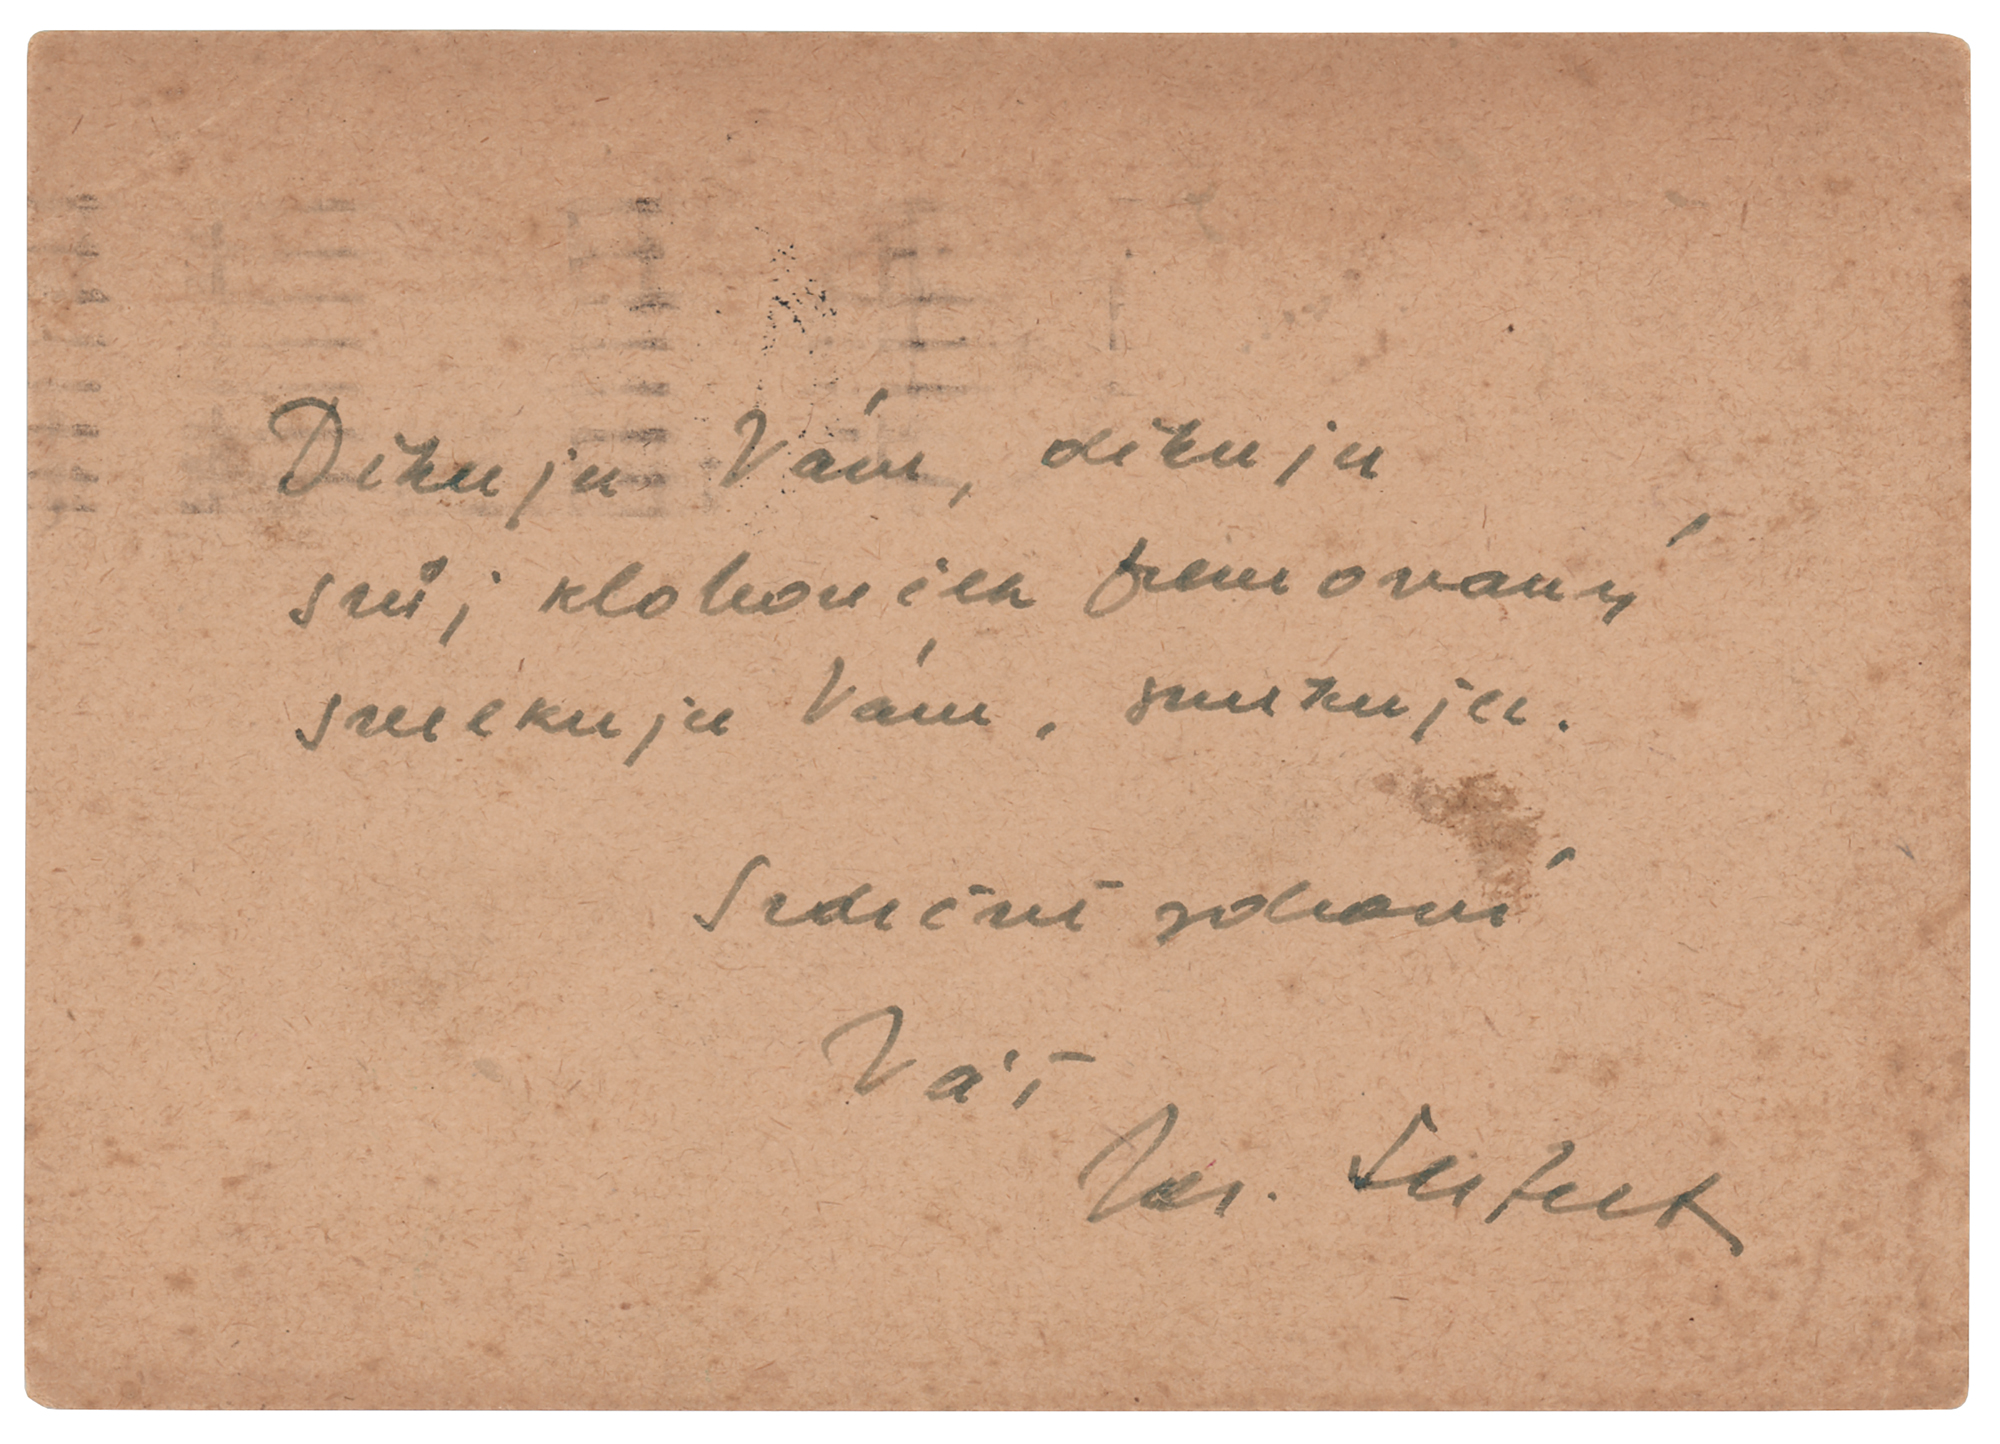 Děkuju Vám, děkuju
svůj klobouček premovaný
smekuju Vám, smekuju.
Srdečně zdraví
Váš
Jar. Seifert